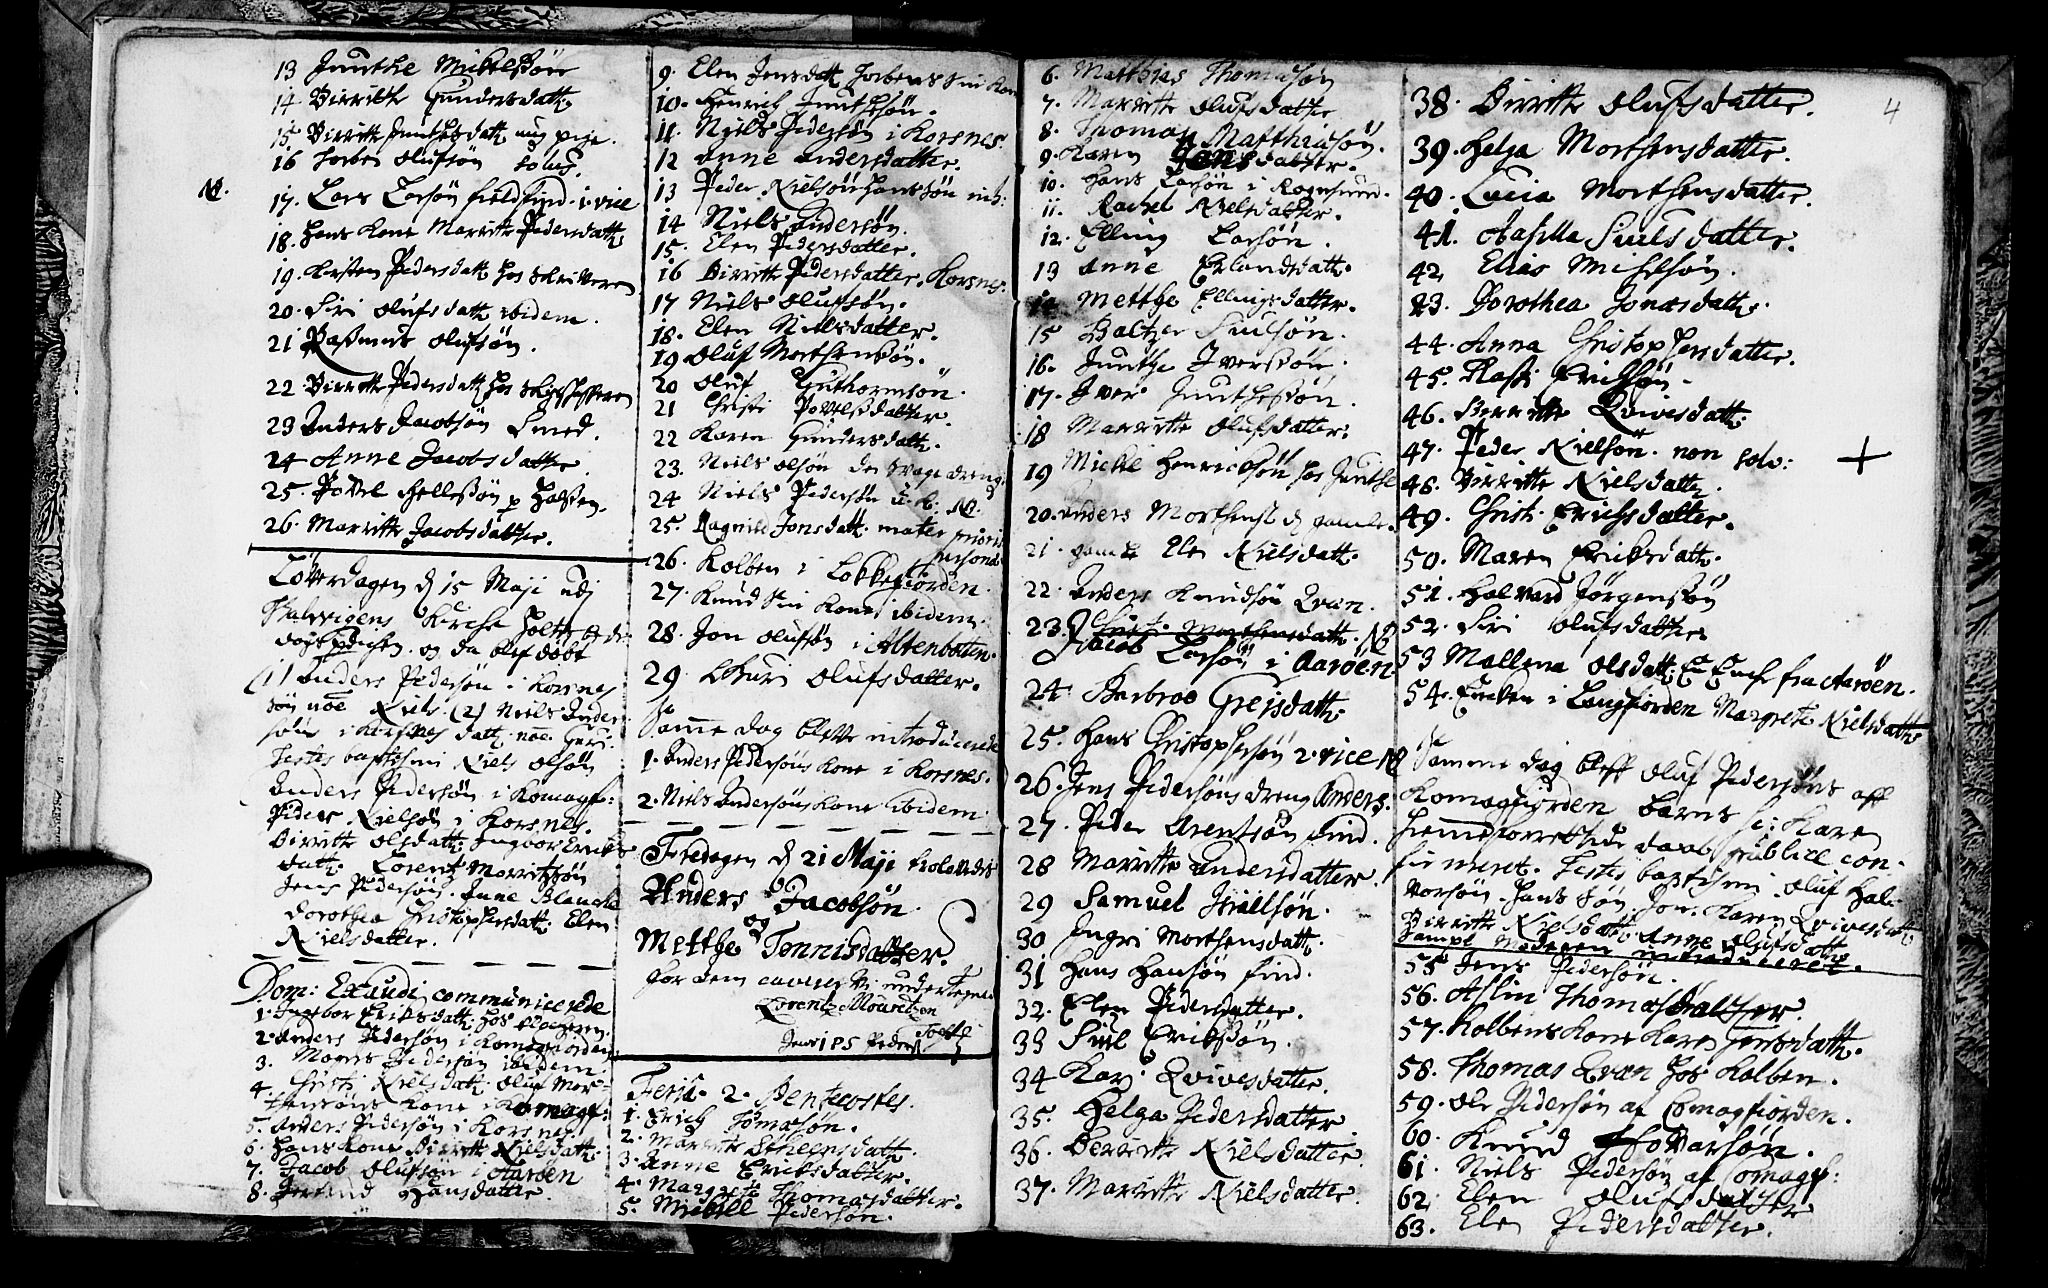 13 Juuthe Mickelsøn
14 Birrithe Gundersdatt.
15. Birrithe Juuthesdatt. ung pige.
16 Torben Olufsøn solus.
N.
17. Lars Larsøn fieldfind. 1. vice
18. Hans kone Marrithe Pedersdatt.
19. Kirsten Pedersdatt. hos Skriveren
20. Siri Olufsdatt. ibidem.
21 Rasmus Olufsøn.
22 Birrithe Pedersdatt. hos
23 Anders Jacobsøn Smed.
24 Anne Jacobsdatter.
25. Povel Hellesøn
26. Marrithe Jacobsdatter.
Løverdagen d 15 Maji udj
Talvigens Kirche holtes
og da blef døbt
(1) Anders Pedersøn i Korsnes
søn noe Niels. (2) Niels Ander-
søns i Korsnes datt. noe
Testes baptismi Niels Olsøn
Anders Pedersøn i Komagf:
Peder Nielsøn i Korsnes.
Birrithe Olsdatt. Ingbor Erichs
datt. Lorentz Mouritzøn
Jens Pedersøn. Anne Blanche
Dorothea Christophersdatt. Elen
Nielsdatter.
Dom: Exaudi communicerede
1. Ingebor Eriksdatt. hos
2. Anders Pedersøn i Komagfiorden
3. Maren Pedersøn ibidem.
4. Christi Nielsdatt. Oluf Mor-
tensøns kone i Komagf:
5. Anders Pedersøn i Korsnes.
6. Hans kone Birrithe Nielsdatt.
7. Jacob Olufsøn i Aarøen
8. Hansdatter.
9. Elen Jensdatt. Torbens
10. Henrich Juuthsøn.
11. Niels Pedersøn i Korsnes.
12 Anne Andersdatter.
13 Peder Nielsøn Hanssøn
14 Niels Andersøn.
15. Elen Pedersdatter.
16 Birrithe Pedersdatter. Korsnes.
17 Niels Olufsøn.
18. Elen Nielsdatter.
19 Oluf Morthensøn.
20 Oluf Guthormsøn.
21 Christi Povelsdatter.
22 Karen Gundersdatt.
23. Niels Olsøn den
24 Niels Pedersøn
25. Ragnild Jonsdatt. mater prioris
personæ
26. Kolben i Lokkefiorden
27. Knud sin kone ibidem.
28. Jon Olufsøn i Altenbotten.
29. Guri Olufsdatter.
Samme dag bleve introducerede
1. Anders Pedersøns kone i Korsnes.
2. Niels Andersøns kone ibidem
Fredagen d 21 Maji trolovedes
Anders Jacobsøn
og
Metthe Tønnisdatter.
for dem caverer Vi undertegnede
Lorentz Mouridtzen
Jens IPS Peders
Feria. 2. Pentecostes.
1. Erich Tomasøn.
2. Marrithe
3. Anne Eriksdatter.
4. Margrete Thomasdatter.
5. Mickell Pedersøn.
6. Matthias Thomasøn
7. Marrithe Olufsdatter
8. Thomas Matthiasøn.
9. Karen Jensdatter.
10. Hans Larsøn i Rognsund.
11. Rachel Nielsdatter.
12. Elling Larsøn.
13 Anne Erlandsdatt.
14 Metthe Ellingsdatter.
15 Baltzer Siulsøn.
16. Juuthe Iversøn.
17. Iver Juuthesøn.
18 Marrithe Olufsdatter:
19 Mickel Henricksøn hos Juuthe
20. Anders Morthens d gamle.
21. gamle Elen Nielsdatt.
22. Anders Knudsøn Qvæn.
23. Christi Morthensdatt. N
Jacob Larsøn i Aarøen
24 Barbroe Grejsdatt.
25. Hans Christophersøn 2. vice
26. Jens Pedersøns dreng Anders.
27. Peder Arentsøn find.
28 Marrithe Andersdatter.
29 Samuel
30 Ingri Morthensdatt.
31 Hans Hansøn find.
32. Elen Pedersdatter.
33 Siul Eriksøn.
34 Kari Qvivesdatter.
35. Helga Pedersdatter
36. Berrithe Nielsdatter.
37. Marrithe Nielsdatter.
4
38. Birrithe Olufsdatter.
39. Helga Morthensdatter.
40. Lucia Morthensdatter.
41. Aasilla Siulsdatter.
42. Elias Michelsøn.
43. Dorothea Jonasdatt.
44. Anna Christophersdatter.
45. Erichsøn.
46. Birrithe Qvivesdatt.
47. Peder Nielsøn. non solv: +
48. Birrithe Nielsdatt.
49. Christi Erichsdatter.
50. Maren Eriksdatt.
51. Halvard Jørgensøn
52. Siri Olufsdatter
53 Mallena Olsdatt. fra Aarøen.
54. Enken i Langfiorden Margrete Nielsdatt.
Samme dag bleff Oluf Pedersøns aff
Komagfiorden barns Karen
hiemeforrettede daab publice con-
firmeret. Testes baptismi. Oluf Hal-
vorsøn. Hans søn Jon. Karen Qvivesdatt.
Birrithe Nielsdatt. Anne Olufsdatt.
Samme Moderen introduceret.
55 Jens Pedersøn.
56. Aslin Thomasdatter.
57. Kolbens kone Karen Jensdatt.
58. Thomas Qvæn hos Kolben.
59. Ole Pedersøn af Comagfiorden.
60. Knud
61. Niels Pedersøn af Comagf:
62. Elen Olufsdatter
63. Elen Pedersdatter.